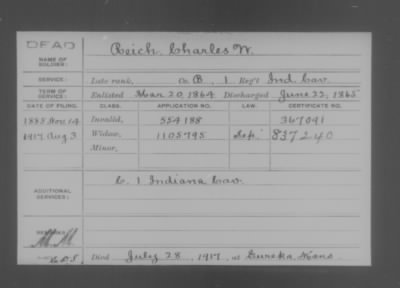 DEAD
NAME OF SOLDIER: Reich, Charles W.
SERVICE: Late rank, Co. B, 1 Reg't Ind. Cav.
TERM OF SERVICE: Enlisted Mar. 20, 1864 Discharged June 22, 1865
DATE OF FILING. CLASS. APPLICATION NO. LAW. CERTIFICATE NO.
1885 Nov. 14 Invalid, 554188 367041
1917 Aug 3 Widow, 1105795 Sep. 837240
Minor,
ADDITIONAL SERVICES: C. 1 Indiana Cav.
REMARKS:
M M
Died July 28, 1917, at Eureka, Kans